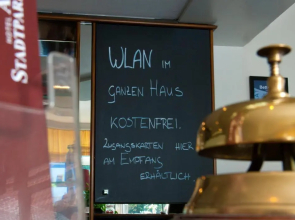 HOTEL A
STADTPAR
WLAN IM
GANZEN HAUS
KOSTENFREI.
ZUGANGSKARTEN HIER
AM EMPFANG
ERHÄLTLICH